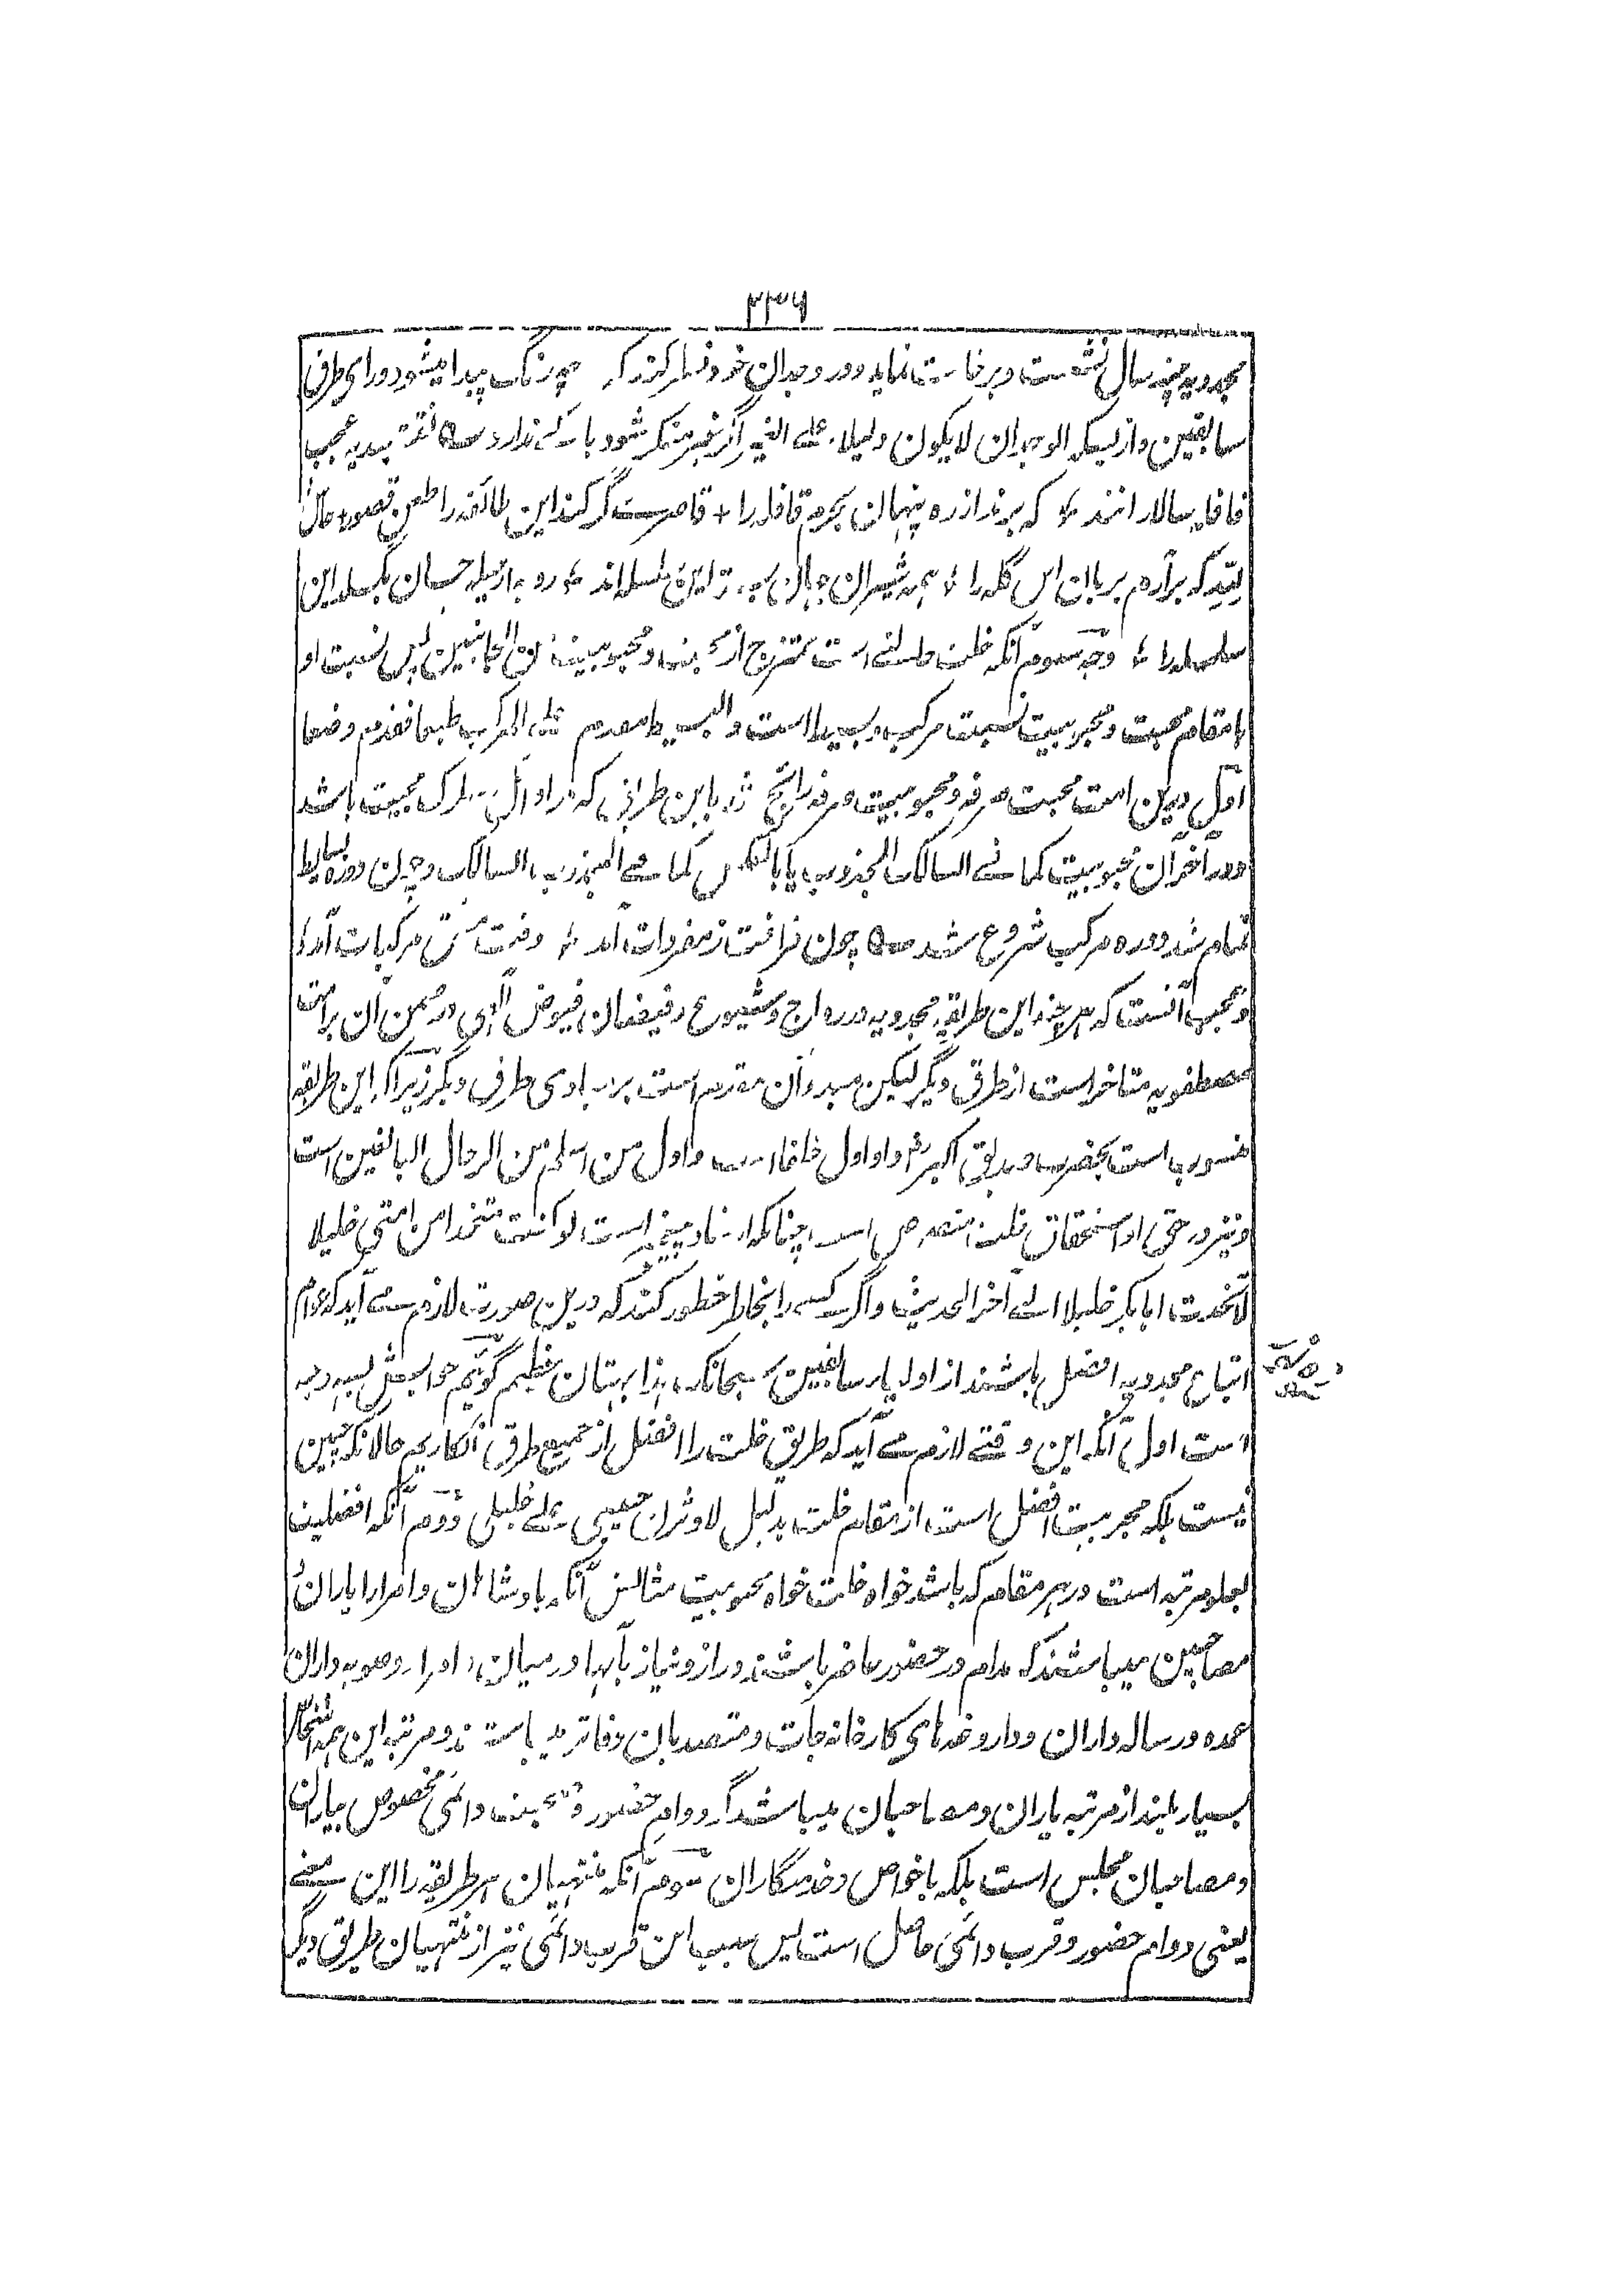 ۳۳۶
مجددیه چند سال نشست و برخاست نماید و در وجدان خود نظر کند که چه رنگ پیدا میشود ورای طرق
سابقین و از بسکه الوجدان لا یکون دلیلا علی الغیر اگر غیر منکر شود باکے ندارد ۵ نقشبندیه عجب
قافله سالارانند ؛ که برند از ره پنهان بحرم قافله را + قاصرے گر کند این طائفه را طعن قصور ؛ حاش
للّٰه که برآرم بزبان این گله را ؛ همه شیران جهان بسته این سلسله اند ؛ روبه از حیله چسان بگسلد این
سلسله را ؛ وجه سوم آنکه خلت حالتے است ممتزج از محبت و محبوبیت من الجانبین پس نسبت او
با مقام محبت و محبوبیت نسبت مرکب و بسیط است و البسیط مقدم علی المرکب طبعا فقدم وضعا
اول درین امت محبت صرفه و محبوبیت صرفه رائج شد باین طریق که در اوائل سلوک محبیت باشد
و در آخر آن محبوبیت کما فے السالک المجذوب یا بالعکس کما فے المجذوب السالک و چون دوره بسایط
تمام شد دوره مرکب شروع شد ۵ چون فراغت ز مفردات آمد ؛ وقت مشق مرکبات آمد
و عجب آنست که هر چند این طریقه مجددیه در رواج و شیوع و فیضان فیوض الهی در ضمن آن بر امت
مصطفویه متاخر است از طرق دیگر لیکن مبدء آن مقدم است بر مبادی طرق دیگر زیرا که این طریقه
منسوب است بحضرت صدیق اکبر رض و او اول خلفا است و اول من اسلم من الرجال البالغین است
و نیز در حق او استحقاق خلت منصوص است چنانکه در احادیث صحیحه است لو کنت متخذا من امتی خلیلا
لاتخذت ابابکر خلیلا الی آخر الحدیث و اگر کسے را بخاطر خطور کند که درین صورت لازم مے آید که عوام
اتباع مجددیه افضل باشند از اولیاء سابقین سبحانک هذا بهتان عظیم گوئیم جوابش بسه وجه
است اول آنکه این وقتے لازم مے آید که طریق خلت را افضل از جمیع طرق انگاریم حالانکه چنین
نیست بلکه محبوبیت افضل است از مقام خلت بدلیل لاوثرن حبیبی علے خلیلی دوم آنکه افضلیت
بعلو مرتبه است در هر مقام که باشد خواه خلت خواه محبوبیت مثالش آنکه بادشاهان و امرا را یاران و
مصاحبین میباشند که مدام در حضور حاضر باشند و راز و نیاز بآنها در میان دارد و امرا و صوبه داران
عمده و رساله داران و داروغه‌های کارخانه جات و متصدیان دفاتر میباشند و مرتبه این همه اشخاص
بسیار بلند از مرتبه یاران و مصاحبان میباشد گو دوام حضور و صحبت دائمی مخصوص بیاران
و مصاحبان مجلس است بلکه با خواص و خدمتگاران سوم آنکه منتهیان هر طریقه را این معنے
یعنی دوام حضور و قرب دائمی حاصل است پس بسبب این قرب دائمی نیز از منتهیان طریق دیگر